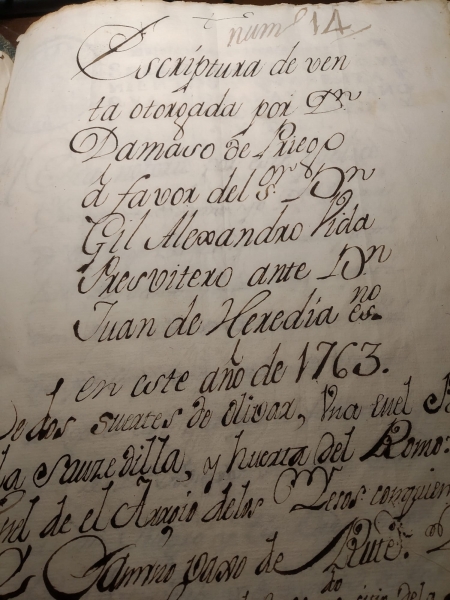 num° 14
Escriptura de ven
ta otorgada por Dn
Damaso de Priego
â favor del Sr. Dn
Gil Alexandro Vida
Presvitero ante Dn
Juan de Heredia esno
en este año de 1763.
De dos suertes de olivar, Una en el
la Sauzedilla, y huerta del Romo:
en el de el Arroio de los
Camino vaxo de Rute.